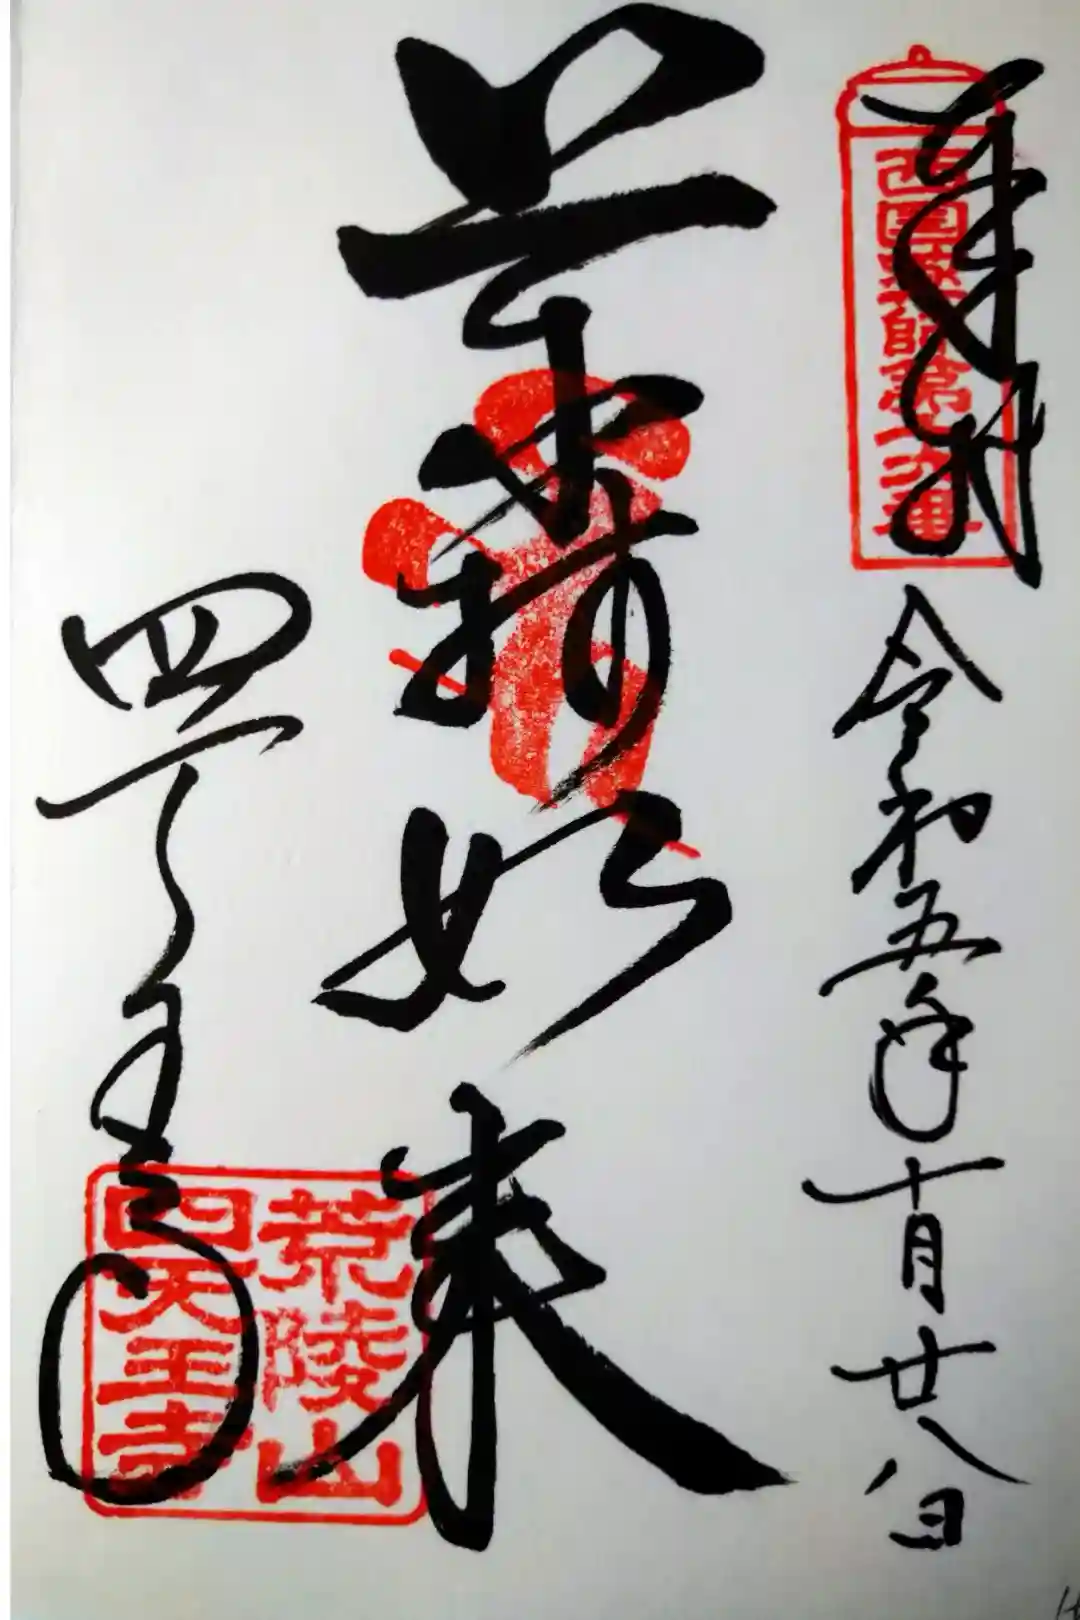 奉拝
西国薬師第十六番
令和五年十月廿八日
薬師如来
四天王寺
荒陵山
四天王寺